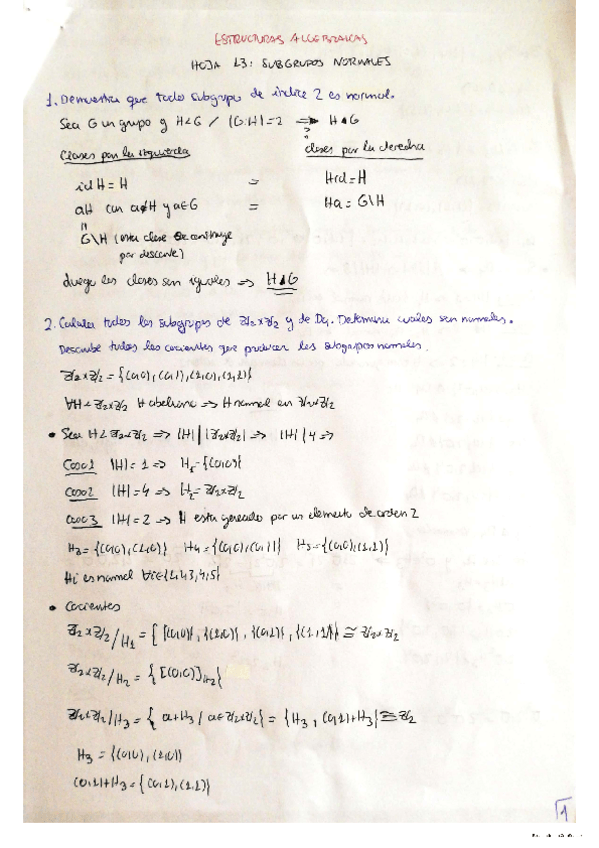 ESTRUCTURAS ALGEBRAICAS
HOJA 13: SUBGRUPOS NORMALES
1. Demuestra que todo subgrupo de índice 2 es normal.
Sea G un grupo y H<G / |G:H|=2 ⟹ H◁G
?
Clases por la izquierda clases por la derecha
id H = H = H id = H
aH con a∉H y a∈G = Ha = G\H
G\H (esta clase se construye
por descarte)
Luego las clases son iguales ⟹ H◁G
2. Calcula todos los subgrupos de Z/2×Z/2 y de D4. Determina cuales son normales.
Describe todos los cocientes que producen los subgrupos normales.
Z/2×Z/2 = {(0,0), (0,1), (1,0), (1,1)}
∀H<Z/2×Z/2 H abeliano ⟹ H normal en Z/2×Z/2
• Sea H<Z/2×Z/2 ⟹ |H| | |Z/2×Z/2| ⟹ |H| | 4 ⟹
Caso 1 |H|=1 ⟹ H1={(0,0)}
Caso 2 |H|=4 ⟹ H2=Z/2×Z/2
Caso 3 |H|=2 ⟹ H esta generado por un elemento de orden 2
H3={(0,0), (1,0)} H4={(0,0), (0,1)} H5={(0,0), (1,1)}
Hi es normal ∀i∈{1,2,3,4,5}
• Cocientes
Z/2×Z/2/H1 = {{(0,0)}, {(1,0)}, {(0,1)}, {(1,1)}} ≅ Z/2×Z/2
Z/2×Z/2/H2 = {[(0,0)]H2}
Z/2×Z/2/H3 = {a+H3 / a∈Z/2×Z/2} = {H3, (0,1)+H3} ≅ Z/2
H3 = {(0,0), (1,0)}
(0,1)+H3 = {(0,1), (1,1)}
1